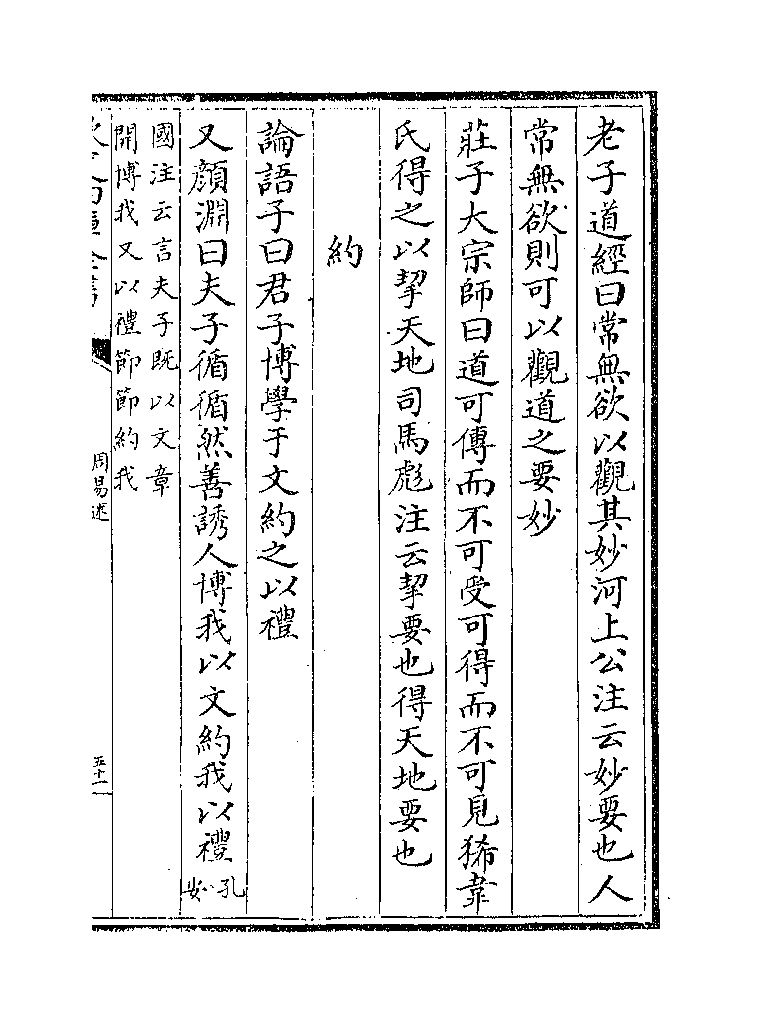 老子道經曰常無欲以觀其妙河上公注云妙要也人
常無欲則可以觀道之要妙
莊子大宗師曰道可傳而不可受可得而不可見狶韋
氏得之以挈天地司馬彪注云挈要也得天地要也
約
論語子曰君子博學于文約之以禮
又顏淵曰夫子循循然善誘人博我以文約我以禮孔安
國注云言夫子既以文章
開博我又以禮節節約我
周易述
五十一